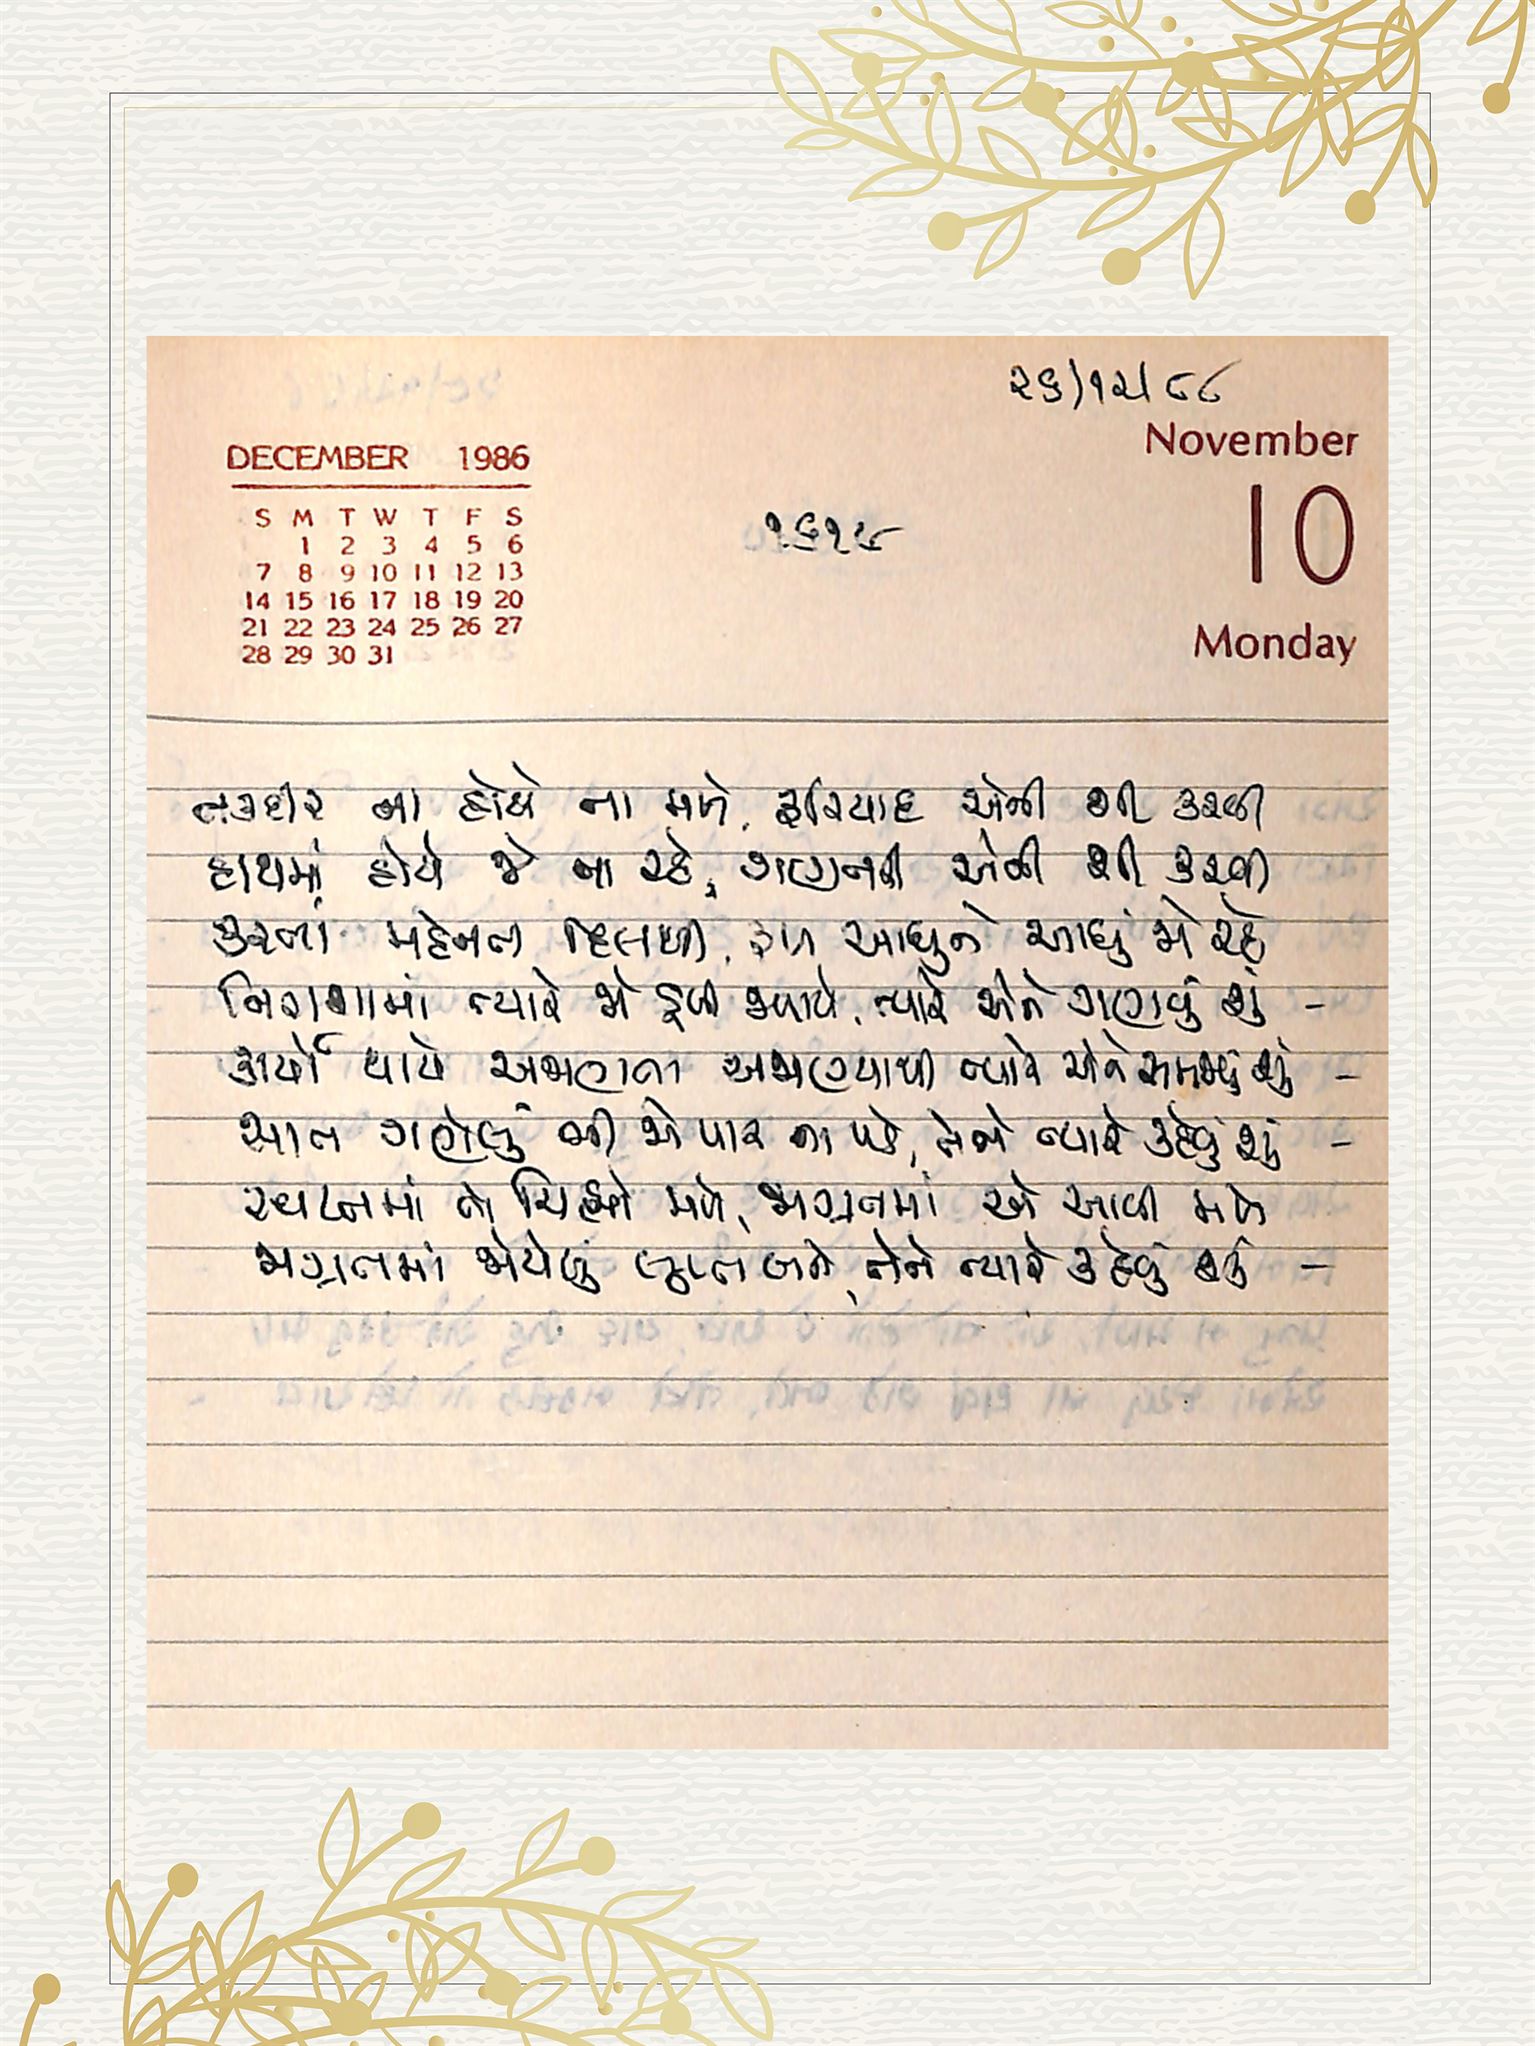 ૨૬/૧૨/૮૮
November
10
Monday
DECEMBER 1986
S M T W T F S
1 2 3 4 5 6
7 8 9 10 11 12 13
14 15 16 17 18 19 20
21 22 23 24 25 26 27
28 29 30 31
૧૬૧૮
તકદીર ના હોયે ના મળે, ફરિયાદ એની શી કરવી
હાથમાં હોયે જે ના રહે, ગણનત્રી એની શી કરવી
કરતાં મહેનત દિલથી, ફળ આઘુંને આઘું જો રહે
નિરાશામાં ત્યારે જો ડૂબી જવાયે, ત્યારે એને ગણવું શું -
કાર્યો થાયે અજાણતા અજાણ્યાથી ત્યારે એને સમજવું શું -
સાત ગણેલું બી જો પાર ના પડે, તેને ત્યારે કહેવું શું -
સ્વપ્નમાં તો ચિહ્નો મળે, જાગ્રતમાં એ આવી મળે
જાગ્રતમાં જોયેલું લુપ્ત બને, તેને ત્યારે કહેવું શું -